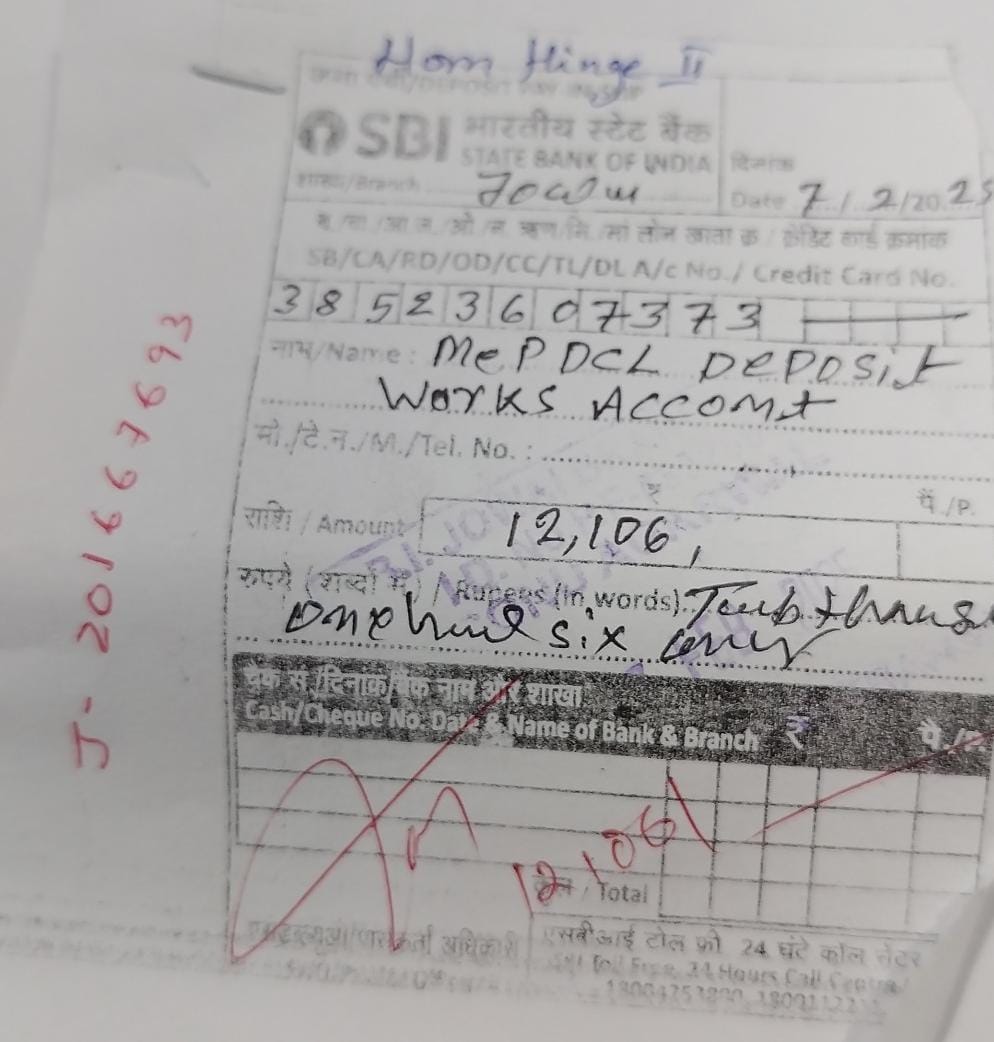 Hom Hinge II
SBI भारतीय स्टेट बैंक
STATE BANK OF INDIA
दिनांक
शाखा/Branch Jowai
Date 7/2/2025
SB/CA/RD/OD/CC/TL/DL A/c No./ Credit Card No.
38523607373
नाम/Name : MePDCL Deposit
Works Accomt
मो./टे.न./M./Tel. No. :
₹ पै./P.
राशि / Amount 12,106,
रुपये (शब्दों में) / Rupees (in words)
one six only
चेक सं./दिनांक/बैंक नाम और शाखा
Cash/Cheque No. Date & Name of Bank & Branch ₹ पै./P.
12,106/
कुल / Total
एसबीआई टोल फ्री 24 घंटे कॉल सेंटर
SBI Toll Free 24 Hours Call Centre
J- 201667693